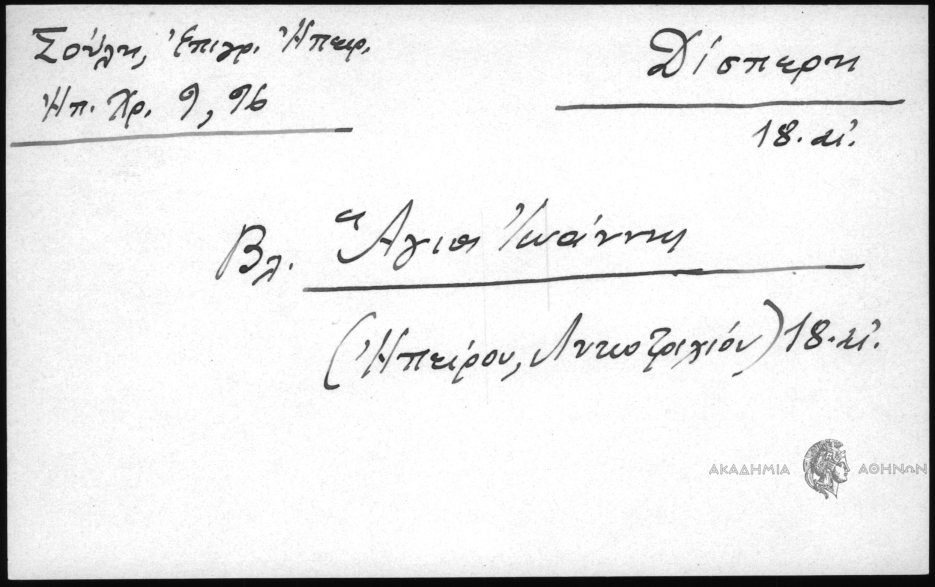 Σούλη, Ἐπιγρ. Ἠπειρ.
Ἠπ. Χρ. 9, 96
Δίσπερη
18. αἰ.
Βλ. Ἅγιος Ἰωάννης
(Ἠπείρου, Λυκοτρίχιον) 18. αἰ.
ΑΚΑΔΗΜΙΑ ΑΘΗΝΩΝ